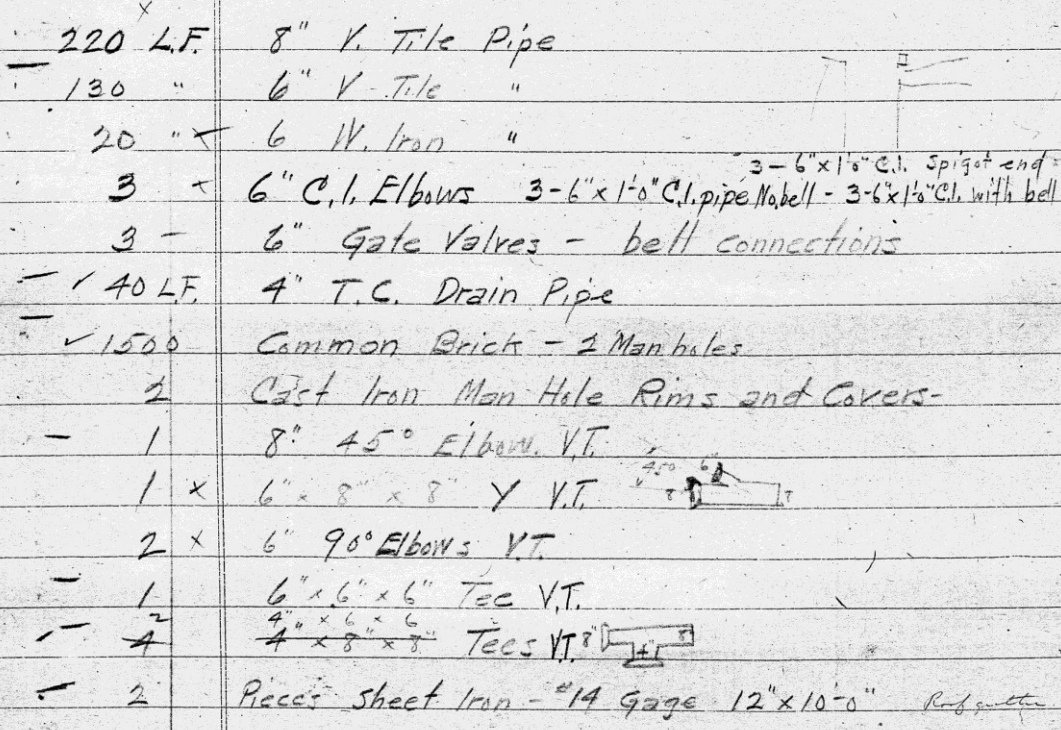 220 L.F. 8" V. Tile Pipe
130 " 6" V. Tile "
20 " 6 W. Iron "
3-6"x1'-0" C.I. Spigot end
3 6" C.I. Elbows 3-6"x1'-0" C.I. pipe No bell - 3-6"x1'-0" C.I. with bell
3 - 6" Gate Valves - bell connections
- ✓ 40 L.F. 4" T.C. Drain Pipe
- ✓ 1500 Common Brick - 2 Manholes
2 Cast Iron Man Hole Rims and Covers-
- 1 8" 45° Elbow. V.T.
1 x 6" x 8" x 8" Y V.T. 450 6" 8 8
2 x 6" 90° Elbows V.T.
- 1 6" x 6" x 6" Tee V.T.
2 4" x 6 x 6
- 4 4" x 8" x 8" Tees V.T. 8" 8 4
- 2 Pieces Sheet Iron - #14 Gage 12" x 10'-0" Roof